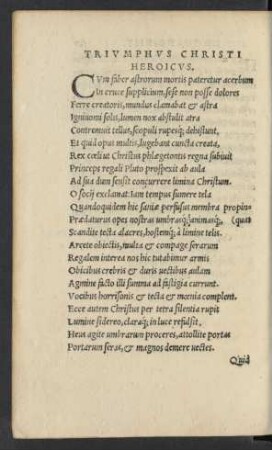 TRIVMPHVS CHRISTI
HEROICVS.
CVm faber astrorum mortis pateretur acerbum
In cruce supplicium, sese non posse dolores
Ferre creatoris, mundus clamabat & astra
Igniuomi solis, lumen nox abstulit atra
Contremuit tellus, scopuli rupesq; dehiscunt,
Et quid opus multis, lugebant cuncta creata,
Rex cœlius Christus phlægetontis regna subiuit
Princeps regali Pluto prospexit ab aula
Ad sua dum sensit concurrere limina Christum.
O socij exclamat iam tempus sumere tela
Quandoquidem hic sanie persusus membra propin-
Prædaturus opes nostras umbrasq; animasq;, (quat
Scandite tecta alacres, hostemq; à limine telis.
Arcete obiectis, multa & compage serarum
Regalem interea nos hic tutabimur armis
Obicibus crebris & duris uectibus aulam
Agmine facto illi summa ad fastigia currunt.
Vocibus horrisonis & tecta & mœnia complent.
Ecce autem Christus per tetra silentia rupit
Lumine sidereo, claraq; in luce refulsit,
Heus agite umbrarum proceres, attollite portas
Portarum seras, & magnos demere uectes.
Quid